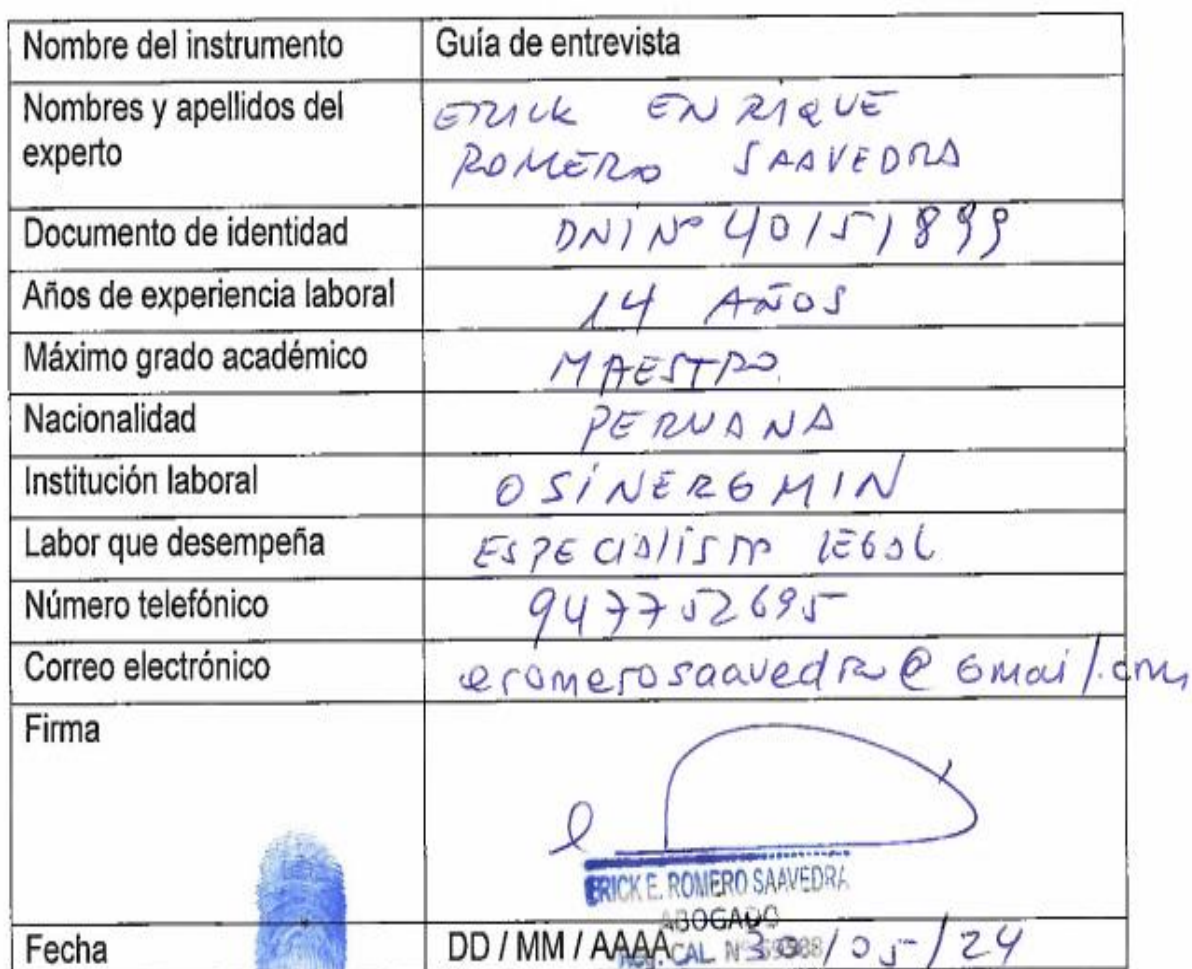 Nombre del instrumento Guía de entrevista
Nombres y apellidos del ERICK ENRIQUE
experto ROMERO SAAVEDRA
Documento de identidad DNI N° 40151899
Años de experiencia laboral 14 AÑOS
Máximo grado académico MAESTRO
Nacionalidad PERUANA
Institución laboral OSINERGMIN
Labor que desempeña ESPECIALISTA LEGAL
Número telefónico 947752695
Correo electrónico eromerosaavedra@gmail.com
Firma
ERICK E. ROMERO SAAVEDRA
ABOGADO
CAL N°
Fecha DD / MM / AAAA 30/05/24